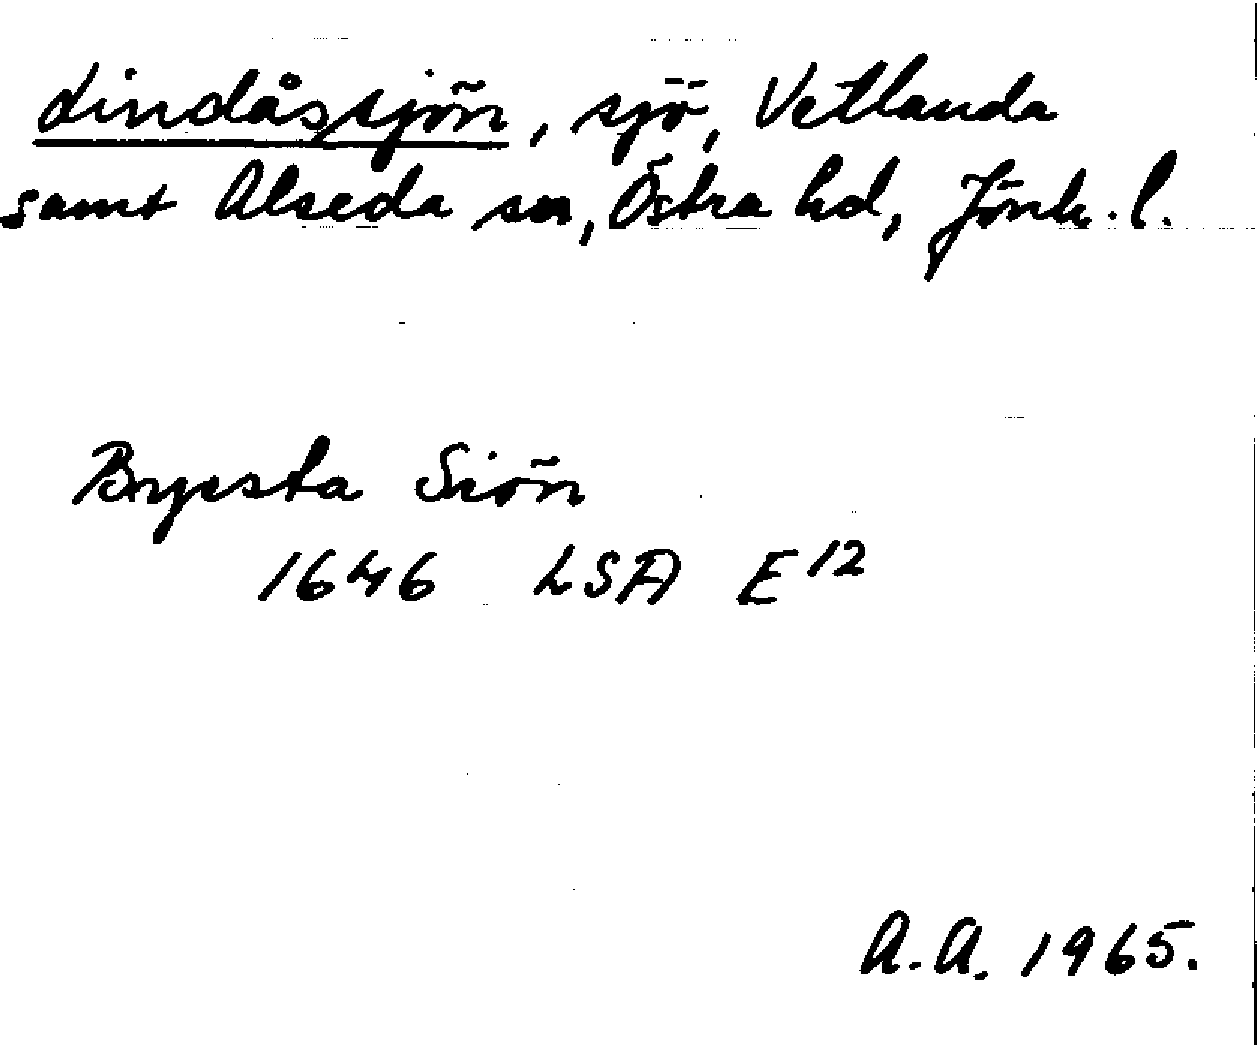 Lindåssjön, sjö, Vetlanda
samt Alseda sn, Östra hd, Jönk. l.
Bryesta Siön
1646 LSA E12
A.A. 1965.